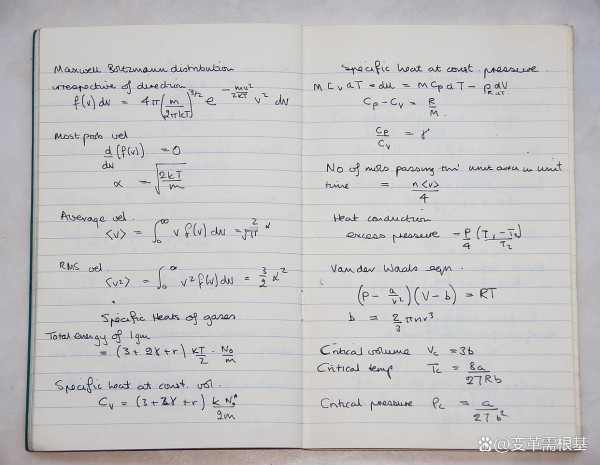 Maxwell Boltzmann distribution
irrespective of direction
f(v) dv = 4π (m/2πkT)^3/2 e^-mv²/2kT v² dv
Most prob vel
d/dv (f(v)) = 0
α = √(2kT/m)
Average vel.
<v> = ∫₀^∞ v f(v) dv = 2/√π α
RMS vel.
<v²> = ∫₀^∞ v² f(v) dv = 3/2 α²
Specific Heats of gases
Total energy of 1gm
= (3+2γ+r) kT/2 · N₀/m
Specific heat at const. vol.
Cv = (3+2γ+r) k N₀/2m
Specific heat at const. pressure.
M Cv dT = du = M Cp dT - p dV
Cp - Cv = R/M
Cp/Cv = γ
No of mols passing thro' unit area in unit
time = n<v>/4
Heat conduction
excess pressure - P/4 (T₁-T₂/T₂)
Van der Waals eqn.
(P - a/v²)(V-b) = RT
b = 2/3 πnr³
Critical volume Vc = 3b
Critical temp Tc = 8a/27Rb
Critical pressure Pc = a/27b²
@变革需根基